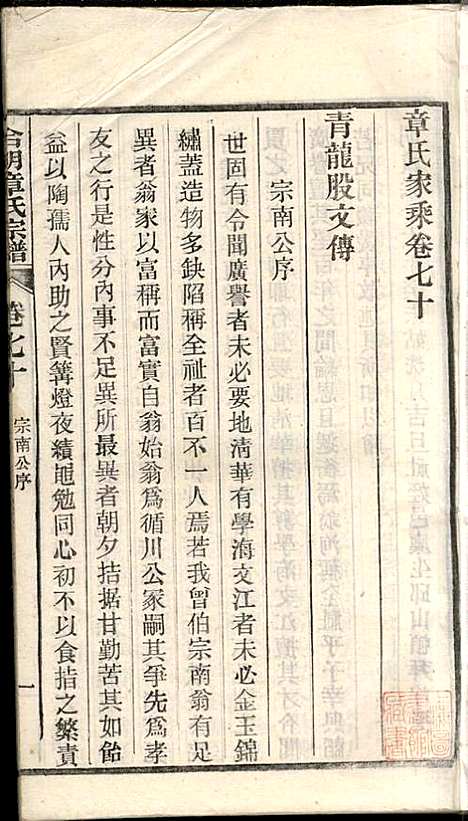 章氏家乘卷七十
青龍股文傳
宗南公序
世固有令聞廣譽者未必要地淸華有學海文江者未必金玉錦
繡蓋造物多缺陷稱全祉者百不一人焉若我曾伯宗南翁有足
異者翁家以富稱而富實自翁始翁爲循川公冢嗣其爭先爲孝
友之行是性分內事不足異所最異者朝夕拮据甘勤苦其如飴
益以陶孺人內助之賢篝燈夜績黽勉同心初不以食指之繁責
章氏宗譜
卷七十
宗南公序
一